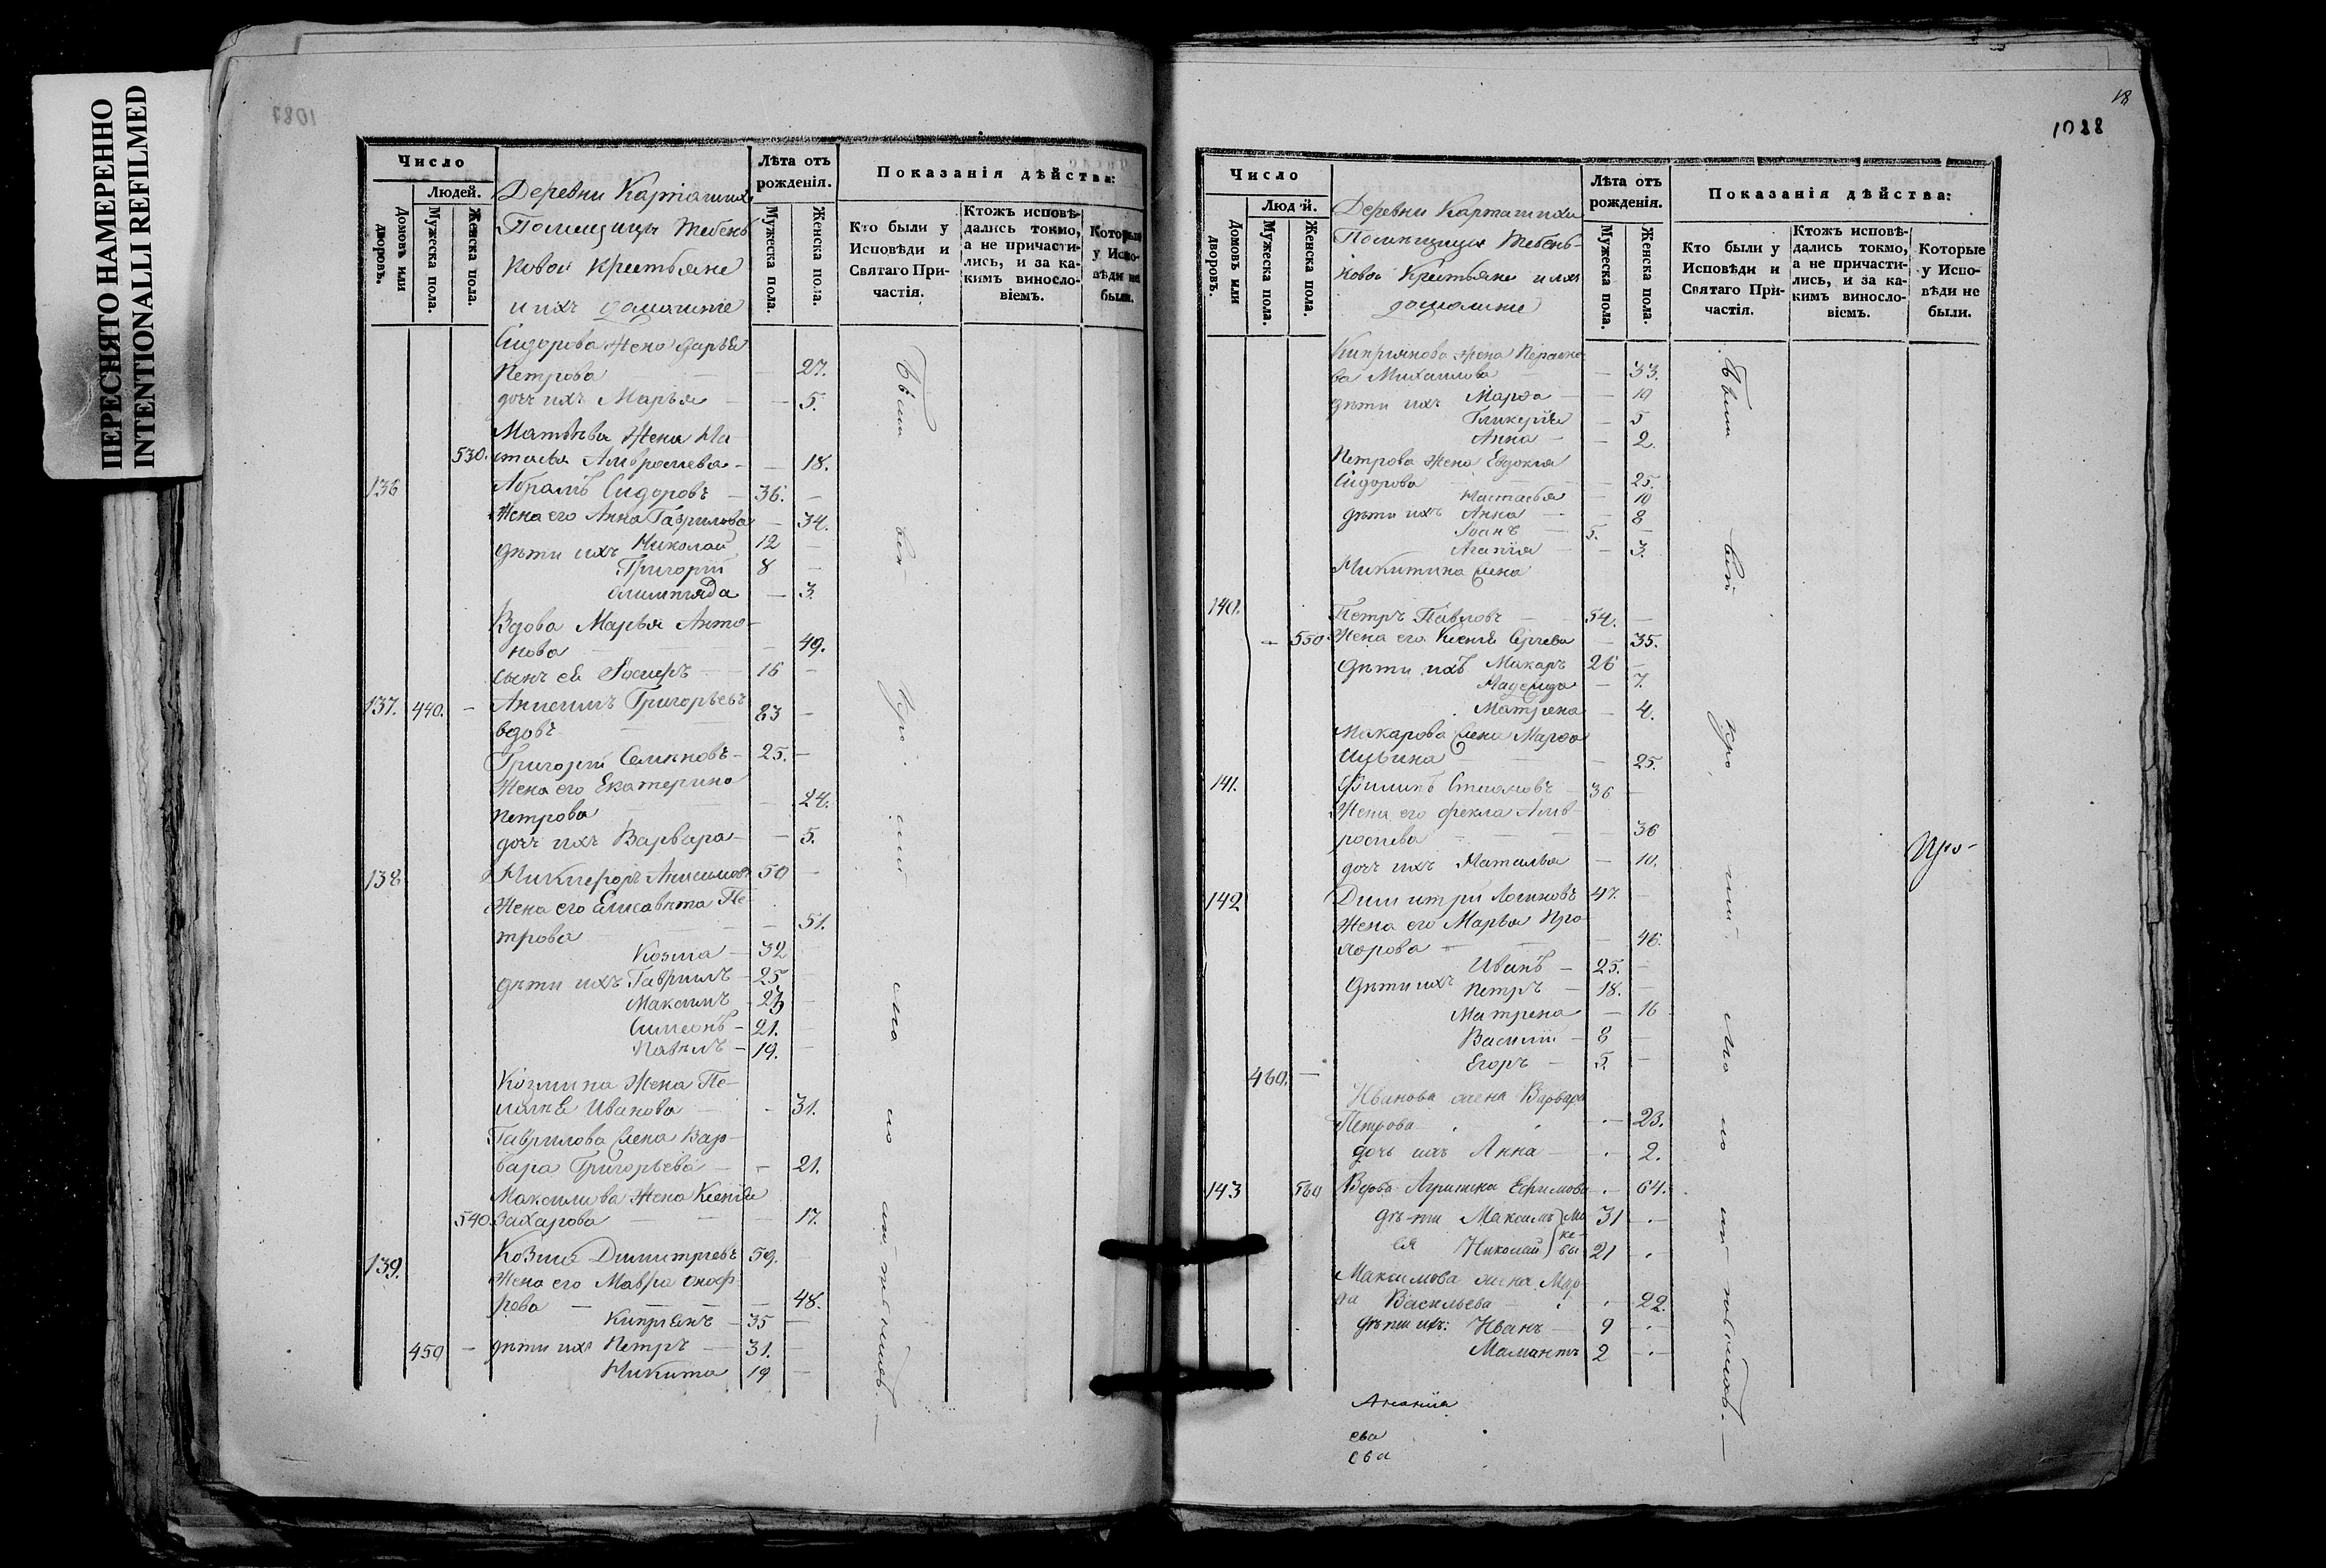 ПЕРЕСНЯТО НАМЕРЕННО
INTENTIONALLI REFILMED
1087
Число
Людей.
Домовъ или дворовъ.
Мужеска пола.
Женска пола.
Деревни Карташихи
Помещицы Тебень
ковой крестьяне
и ихъ домашніе
Лѣта отъ рожденія.
Мужеска пола.
Женска пола.
Показанія дѣйства:
Кто были у Исповѣди и Святаго Причастія.
Ктожъ исповѣдались токмо, а не причастились, и за какимъ винословіемъ.
Которые у Исповѣди не были.
Сидорова жена Дарья
Петрова — 27.
дочь ихъ Марья — 5.
Матвѣева жена На
530. стасья Амвросиева — 18.
136 Абрамъ Сидоровъ — 36. —
Жена его Анна Гаврилова — 34.
дѣти ихъ Николай 12 —
Григорій 8 —
Олимпиада — 3.
Вдова Марья Анто-
нова — 49.
сынъ ея Іосифъ — 16 —
137. 440. — Анисимъ Григорьевъ 83 —
вдовъ
Григорій Семеновъ — 25. —
Жена его Екатерина
Петрова — 24.
дочь ихъ Варвара — 5.
138 Никифоръ Анисимовъ 50 —
Жена его Елисавета Пе
трова — 51.
Козма — 32
дѣти ихъ Гавриилъ — 25
Максимъ — 23 —
Симеонъ — 21.
Павелъ — 19. —
Козмина жена Пе-
лагея Иванова — 31.
Гаврилова жена Вар-
вара Григорьева — 21.
Максимова жена Ксенія
540. Захарова — 17.
139. Козма Димитріевъ 59.
Жена его Мавра Оноф
рева — 48.
Кипріянъ — 35 —
450 — дѣти ихъ Петръ — 31. —
Никита 19 —
18
1088
Число
Людей.
Домовъ или дворовъ.
Мужеска пола.
Женска пола.
Деревни Карташихи
Помѣщицы Тебень-
ковой Крестьяне и ихъ
домашніе
Лѣта отъ рожденія.
Мужеска пола.
Женска пола.
Показанія дѣйства:
Кто были у Исповѣди и Святаго Причастія.
Ктожъ исповѣдались токмо, а не причастились, и за какимъ винословіемъ.
Которые у Исповѣди не были.
Кипріянова жена Параске
ва Михайлова — 33.
дѣти ихъ Марѳа — 10
Гликерія — 5
Анна — 2.
Петрова жена Евдокия
Сидорова — 25.
Настасья — 10
дѣти ихъ Анна — 8
Іоанъ 5. —
Агапія — 3.
Никитина жена
140. Петръ Павловъ — 54. —
— 550 Жена его Ксенія Сергѣева — 35.
дѣти ихъ Макаръ 26 —
Надежда — 7.
Матрена — 4.
Макарова жена Марѳа
Ильина — 25.
141. Филипъ Степановъ — 36 —
Жена его Фекла Амв-
росиева — 36
дочь ихъ Наталья — 10.
142 Димитрій Логиновъ 47. —
Жена его Марья Про
хорова — 46.
Иванъ — 25. —
Дѣти ихъ Петръ — 18. —
Матрена — 16
Василій — 8 —
Егоръ — 5. —
460. —
Иванова жена Варвара
Петрова — 23.
дочь ихъ Анна — 2.
143 560 Вдова Агрипина Ефимова — 64.
дѣти Максимъ 31 —
ея Николай 21 —
Максимова жена Мар
ѳа Васильева — 22.
дѣти ихъ: Иванъ — 9 —
Мамантъ 2 —
Ананіа
ева
ева